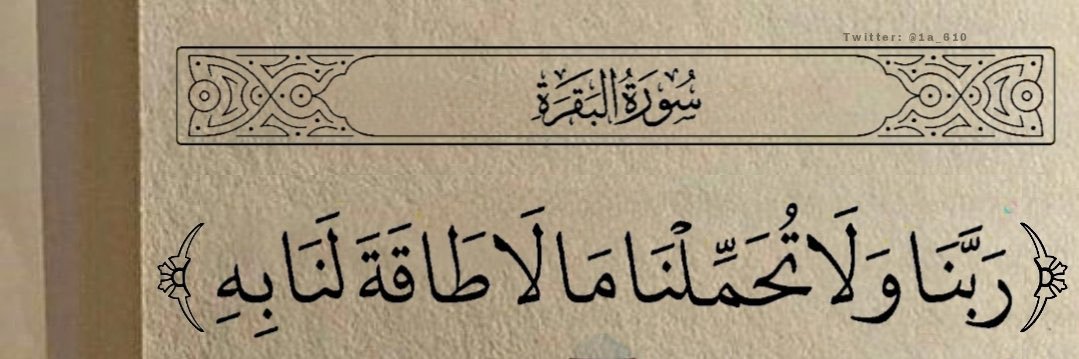 Twitter: @1a_610
سُورَةُ البَقَرَةِ
﴿رَبَّنَا وَلَا تُحَمِّلْنَا مَا لَا طَاقَةَ لَنَا بِهِ﴾